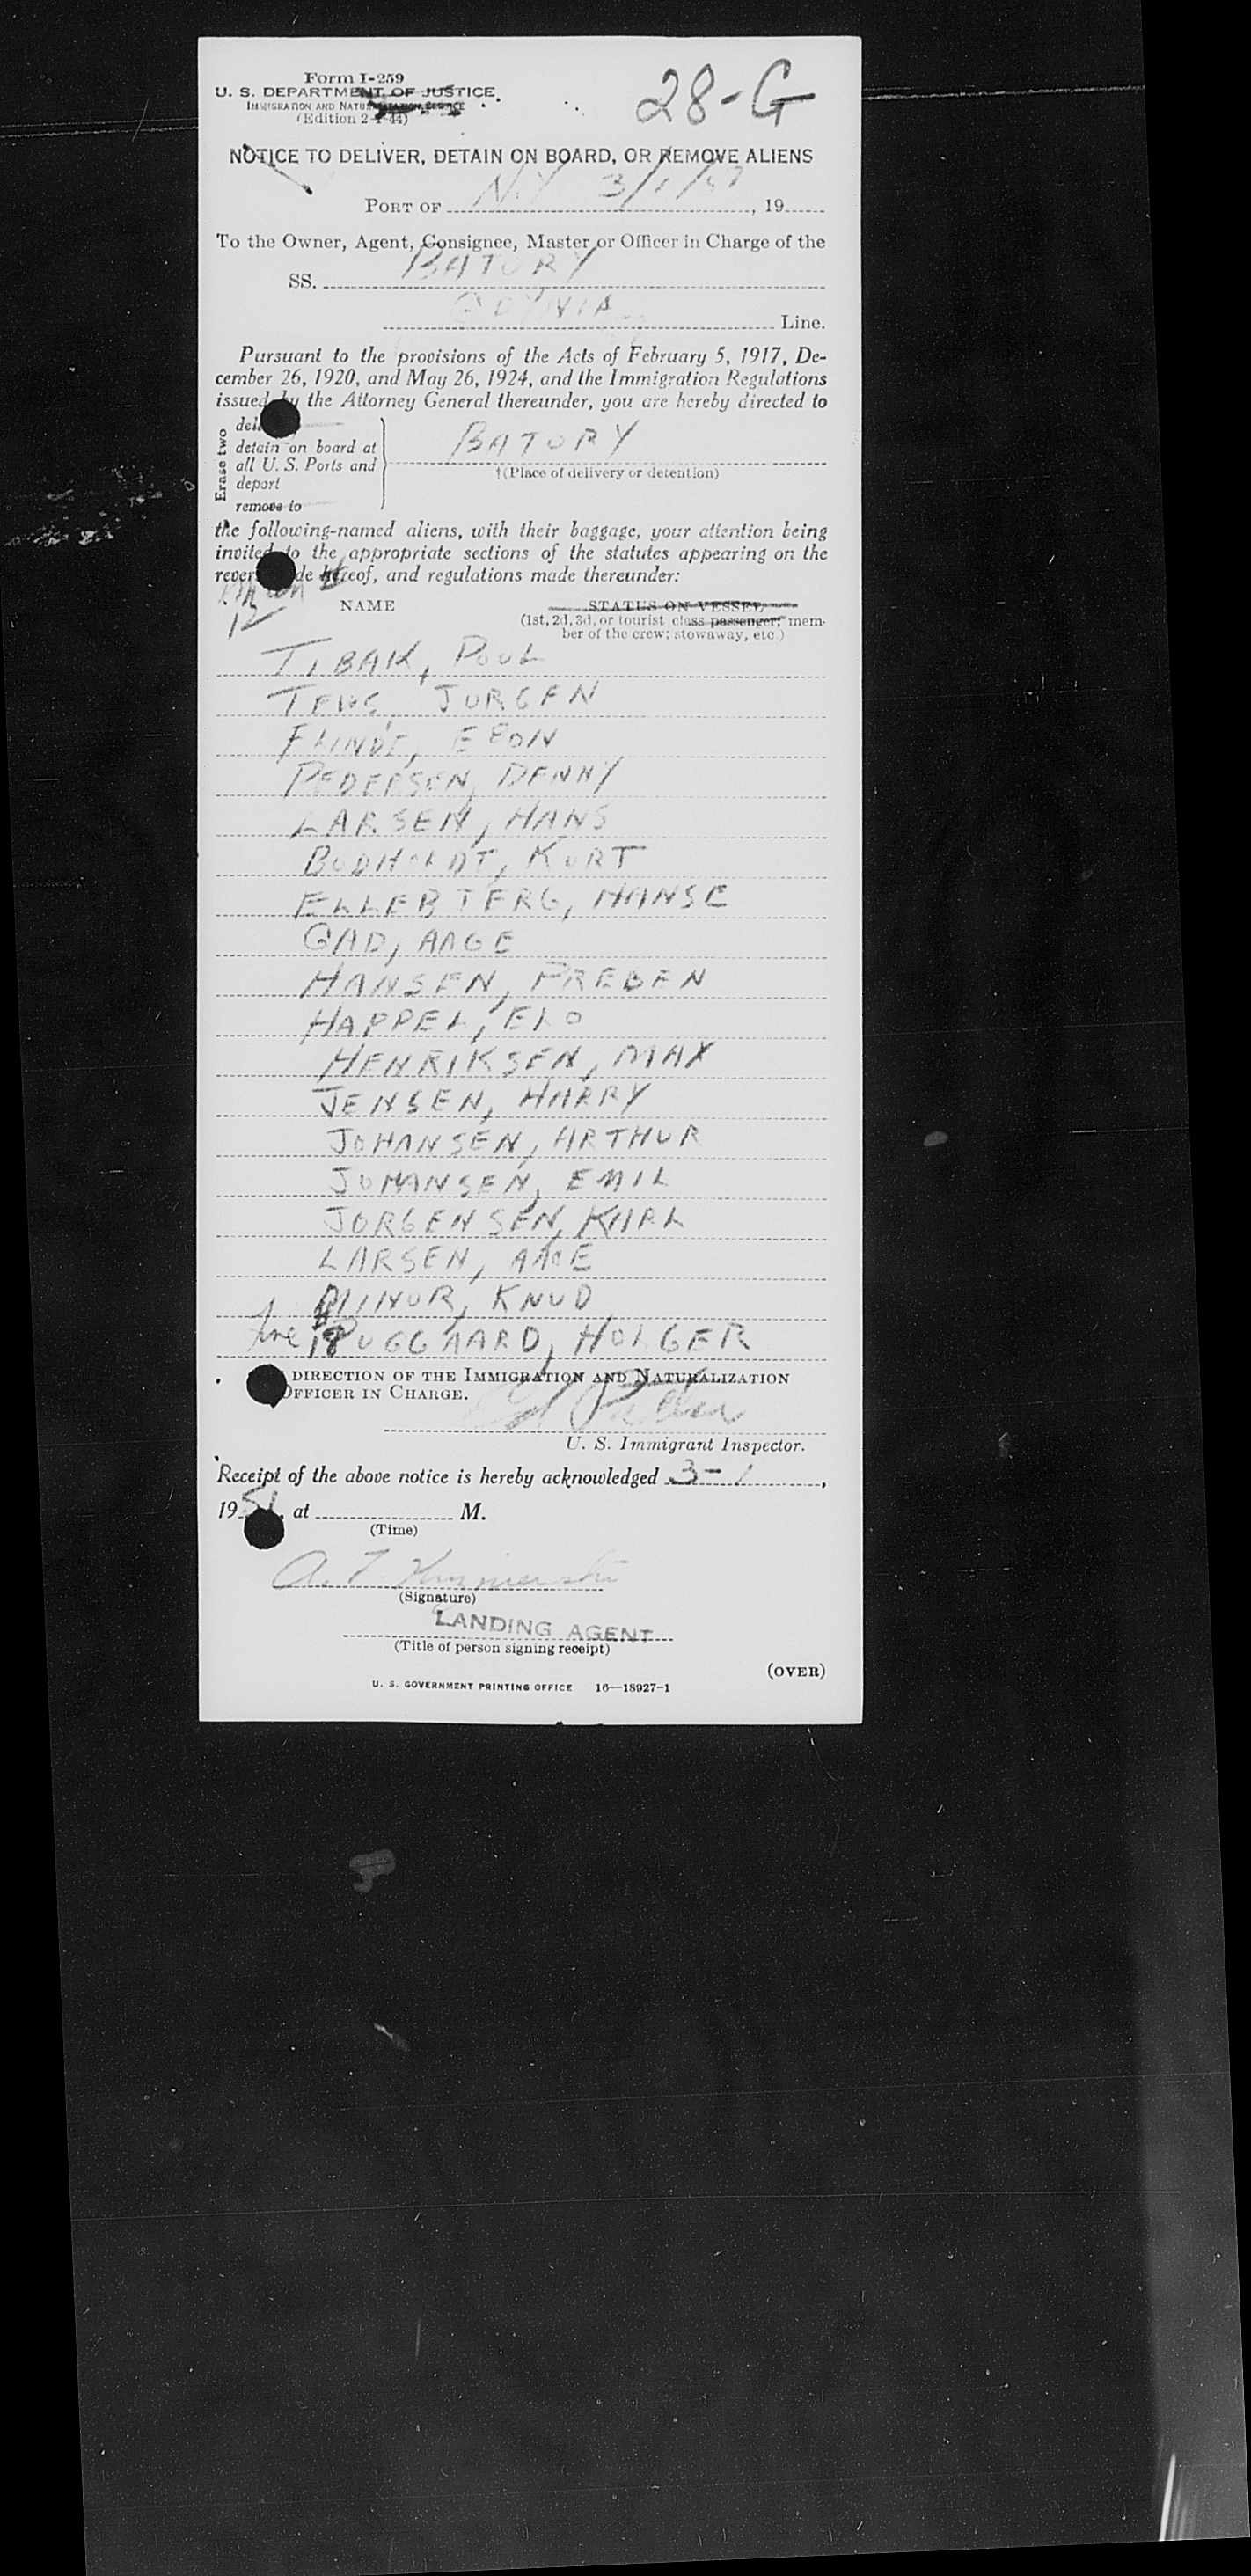 Form I-259
U. S. DEPARTMENT OF JUSTICE
IMMIGRATION AND NATURALIZATION SERVICE
(Edition 2-1-44)
28-G
NOTICE TO DELIVER, DETAIN ON BOARD, OR REMOVE ALIENS
PORT OF N.Y 3/1/51, 19
To the Owner, Agent, Consignee, Master or Officer in Charge of the
SS. BATORY
GDYNIA Line.
Pursuant to the provisions of the Acts of February 5, 1917, De-
cember 26, 1920, and May 26, 1924, and the Immigration Regulations
issued by the Attorney General thereunder, you are hereby directed to
Erase two
detain on board at
all U. S. Ports and
deport
remove to
BATORY
†(Place of delivery or detention)
the following-named aliens, with their baggage, your attention being
invited to the appropriate sections of the statutes appearing on the
reverse side hereof, and regulations made thereunder:
12
NAME
STATUS ON VESSEL
(1st, 2d, 3d, or tourist class passenger; mem-
ber of the crew; stowaway, etc.)
TIBAK, POUL
JORGEN
PEDERSEN, DENNY
LARSEN, HANS
KURT
HANSE
GAD, AAGE
HANSEN, PREBEN
HAPPEL, ELO
HENRIKSEN, MAX
JENSEN, HARRY
JOHANSEN, ARTHUR
JOHANSEN, EMIL
JORGENSEN, KARL
LARSEN, AAGE
KNUD
18 PUGGAARD, HOLGER
DIRECTION OF THE IMMIGRATION AND NATURALIZATION
OFFICER IN CHARGE.
U. S. Immigrant Inspector.
Receipt of the above notice is hereby acknowledged 3-1,
1951, at M.
(Time)
(Signature)
LANDING AGENT
(Title of person signing receipt)
(OVER)
U. S. GOVERNMENT PRINTING OFFICE 16—18927-1